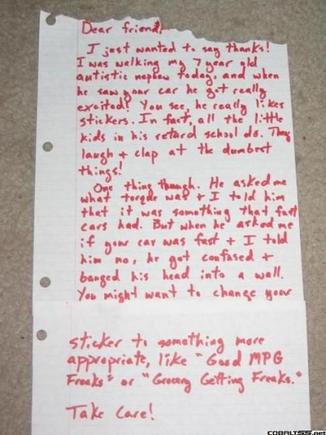 Dear friend,
I just wanted to say thanks!
I was walking my 7 year old
autistic nephew today, and when
he saw your car he got really
excited! You see, he really likes
stickers. In fact, all the little
kids in his retard school do. They
laugh + clap at the dumbest
things!
One thing though. He asked me
what torque was + I told him
that it was something that fast
cars had. But when he asked me
if your car was fast + I told
him no, he got confused +
banged his head into a wall.
You might want to change your
sticker to something more
appropriate, like "Good MPG
Freaks" or "Grocery Getting Freaks."
Take Care!
COBALTSS.net